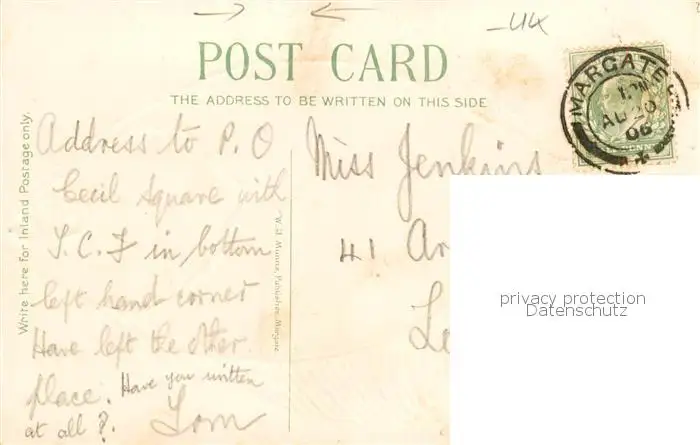 -44X
POST CARD
THE ADDRESS TO BE WRITTEN ON THIS SIDE
MARGATE
AU 20
06
PENNY
Write here for Inland Postage only.
Address to P.O
Cecil Square with
T.C.F in bottom
left hand corner
Have left the other
place. Have you written
at all?. Tom
W.H. Munroe, Publisher, Margate
Miss Jenkins
41 Ar
Le
privacy protection
Datenschutz